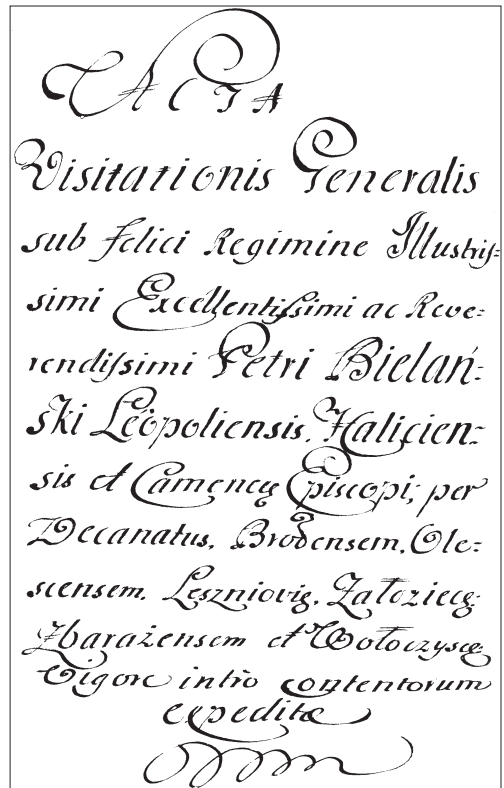 ACTA
Visitationis Generalis
sub felici Regimine Illustris=
simi Excellentissimi ac Reve=
rendissimi Petri Bielań=
ski Leopoliensis, Halicien=
sis et Camenecę Episcopi; per
Decanatus, Brodensem, Ole=
scensem, Leszniovię, Załoziecę
Zbarażensem et Wołoczyscę
Vigore intro contentorum
expedita